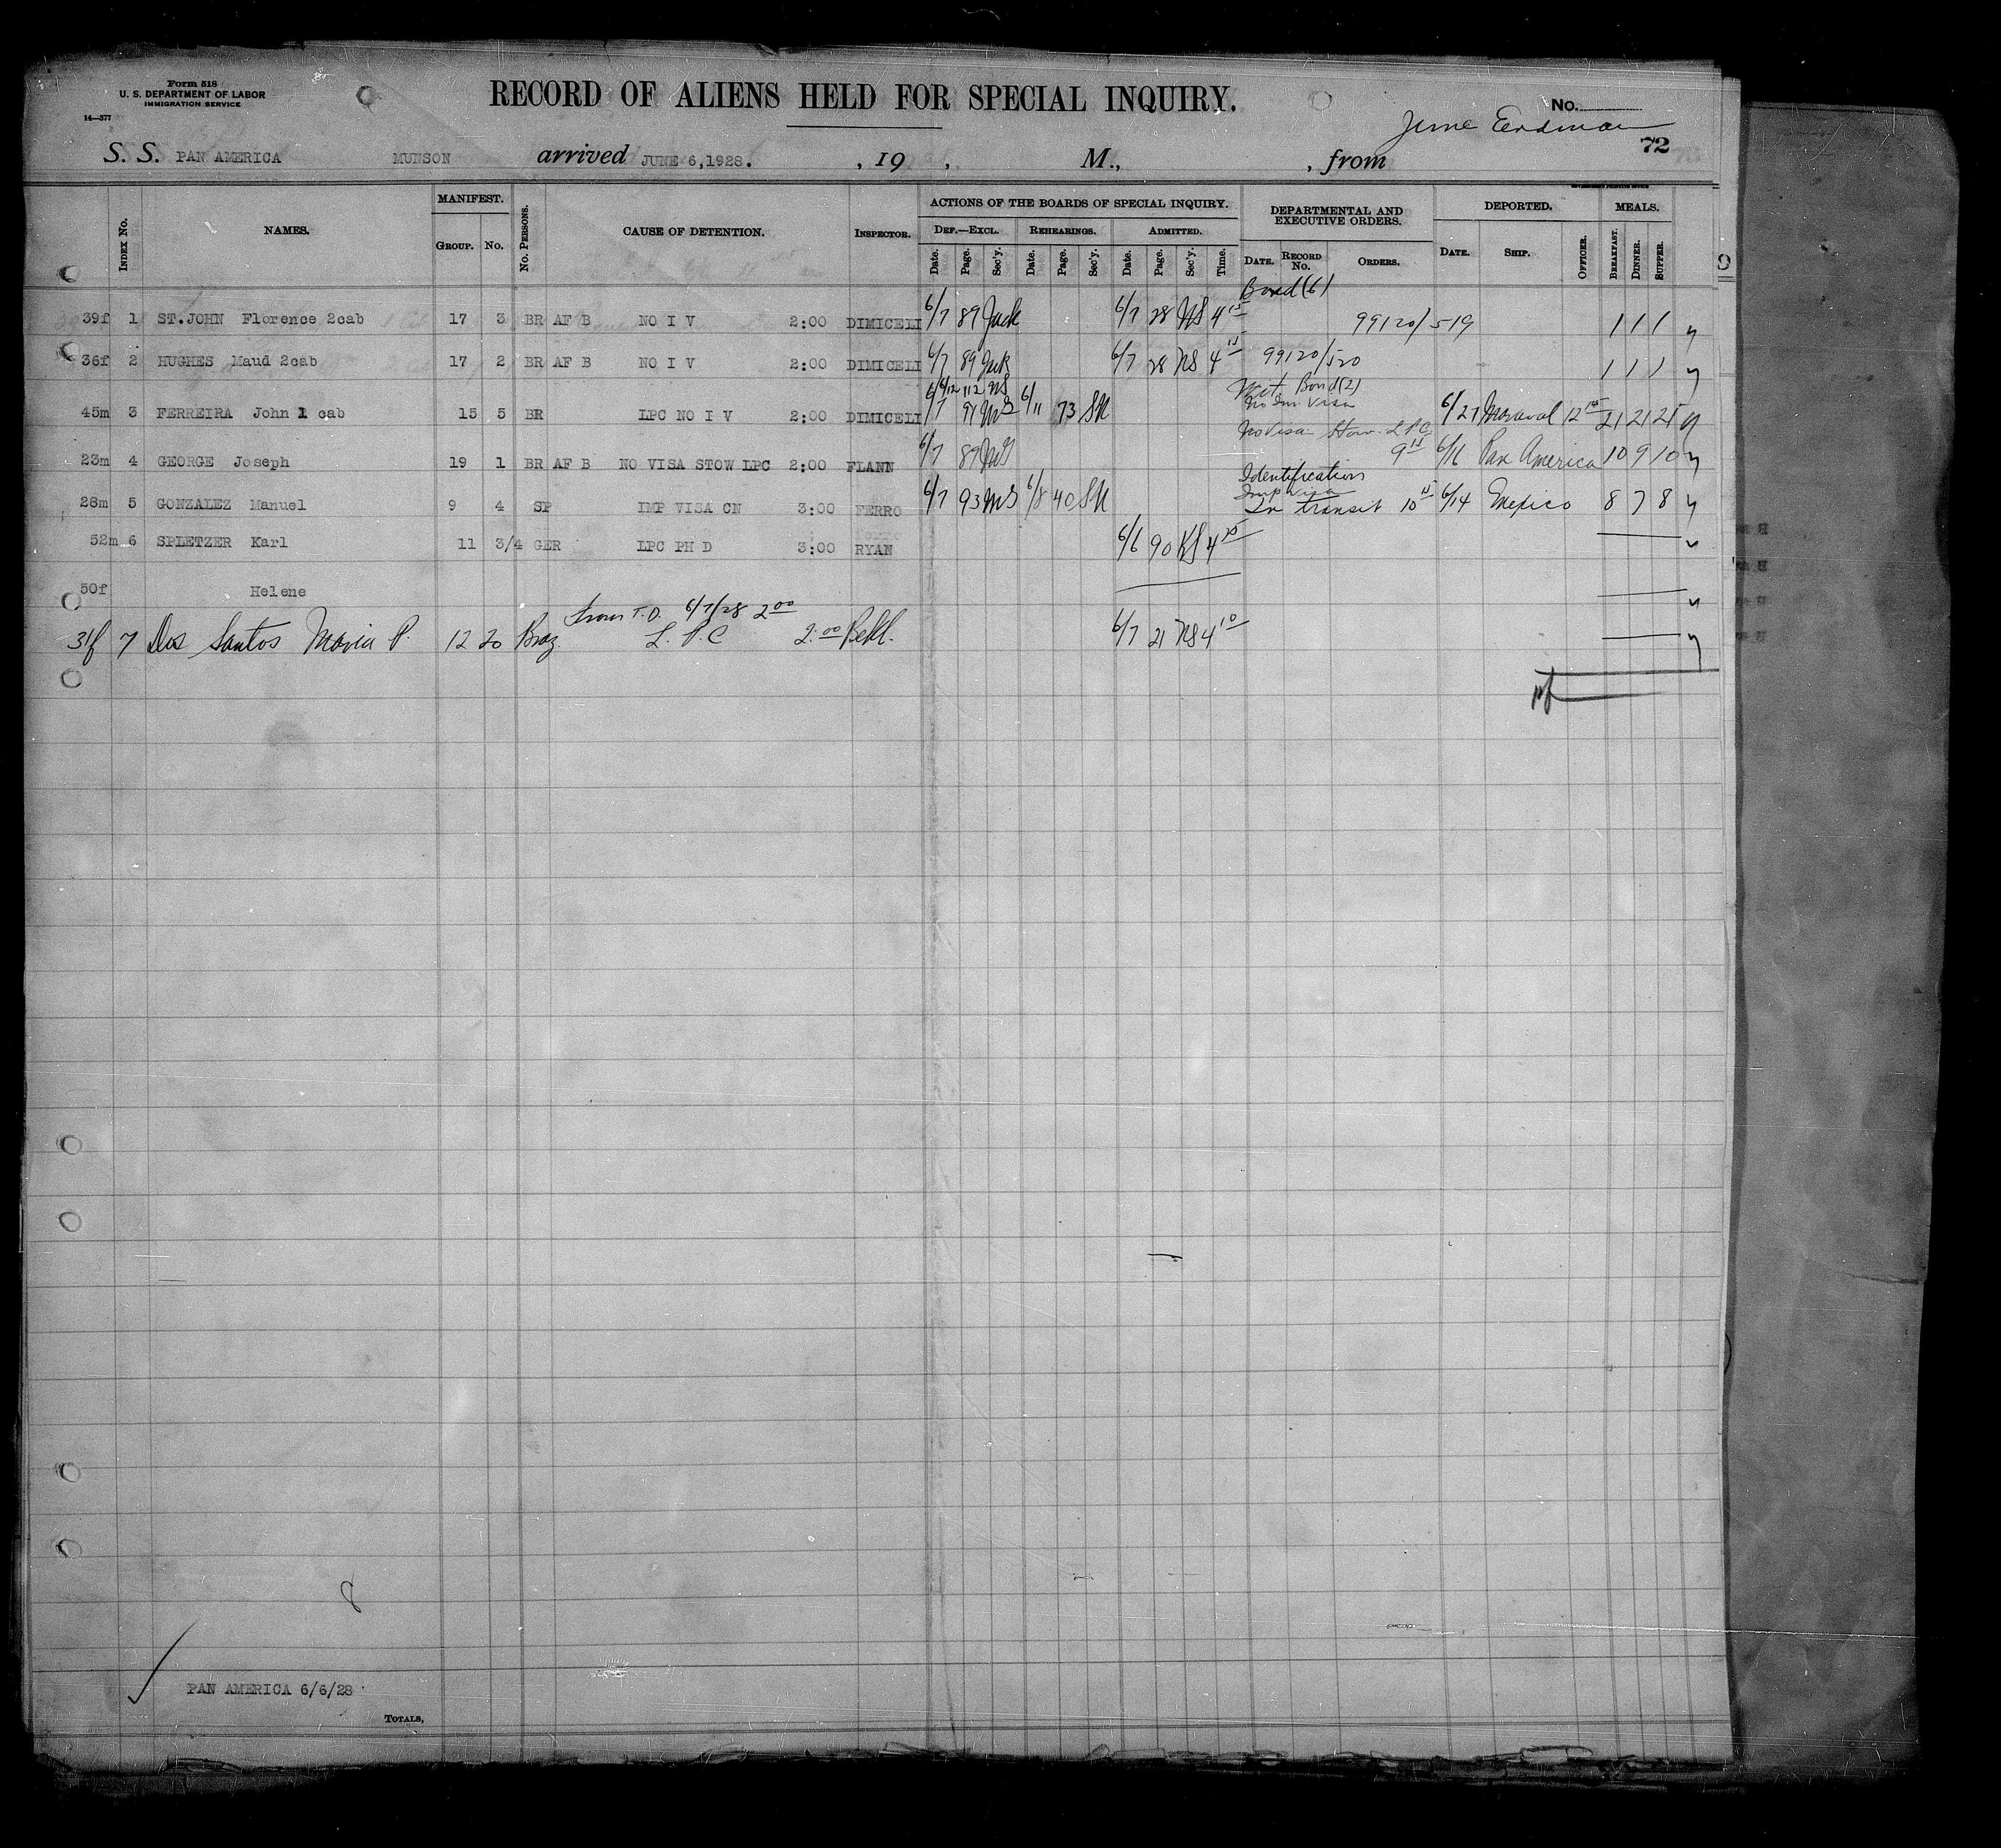 Form 518
U. S. DEPARTMENT OF LABOR
IMMIGRATION SERVICE
14—377
RECORD OF ALIENS HELD FOR SPECIAL INQUIRY.
No.
72
S. S. PAN AMERICA MUNSON arrived JUNE 6,1928. , 19 , M., , from
INDEX No. NAMES. MANIFEST. GROUP. No. No. PERSONS. CAUSE OF DETENTION. INSPECTOR. ACTIONS OF THE BOARDS OF SPECIAL INQUIRY. DEF.—EXCL. Date. Page. Sec'y. REHEARINGS. Date. Page. Sec'y. ADMITTED. Date. Page. Sec'y. Time. DEPARTMENTAL AND EXECUTIVE ORDERS. DATE. RECORD No. ORDERS. DEPORTED. DATE. SHIP. OFFICER. MEALS. BREAKFAST. DINNER. SUPPER.
Bond (6)
39f 1 ST.JOHN Florence 2cab 17 3 BR AF B NO I V 2:00 DIMICELI 6/7 89 Jack 6/7 28 NS 4 15 99120/519 1 1 1
36f 2 HUGHES Maud 2cab 17 2 BR AF B NO I V 2:00 DIMICELI 6/7 89 Jack 6/7 28 NS 4 15 99120/520 1 1 1
6/12 112 NS Bond (2)
45m 3 FERREIRA John 1 cab 15 5 BR LPC NO I V 2:00 DIMICELI 6/7 91 6/11 73 SN No Im Visa 6/27 12 21 21 21
No Visa Stow. L P C
23m 4 GEORGE Joseph 19 1 BR AF B NO VISA STOW LPC 2:00 FLANN 6/7 89 9 15 6/16 Pan America 10 9 10
Identification
Imp Visa
28m 5 GONZALEZ Manuel 9 4 SP IMP VISA CN 3:00 FERRO 6/7 93 6/8 40 SN In transit 10 15 6/14 Mexico 8 7 8
52m 6 SPLETZER Karl 11 3/4 GER LPC PH D 3:00 RYAN 6/6 90 KS 4
50f Helene
from T.D. 6/7/28 2 00
31f 7 Dos Santos Maria P. 12 20 Braz. L. P. C 2:00 6/7 21 NS 4 10
8
PAN AMERICA 6/6/28
TOTALS,